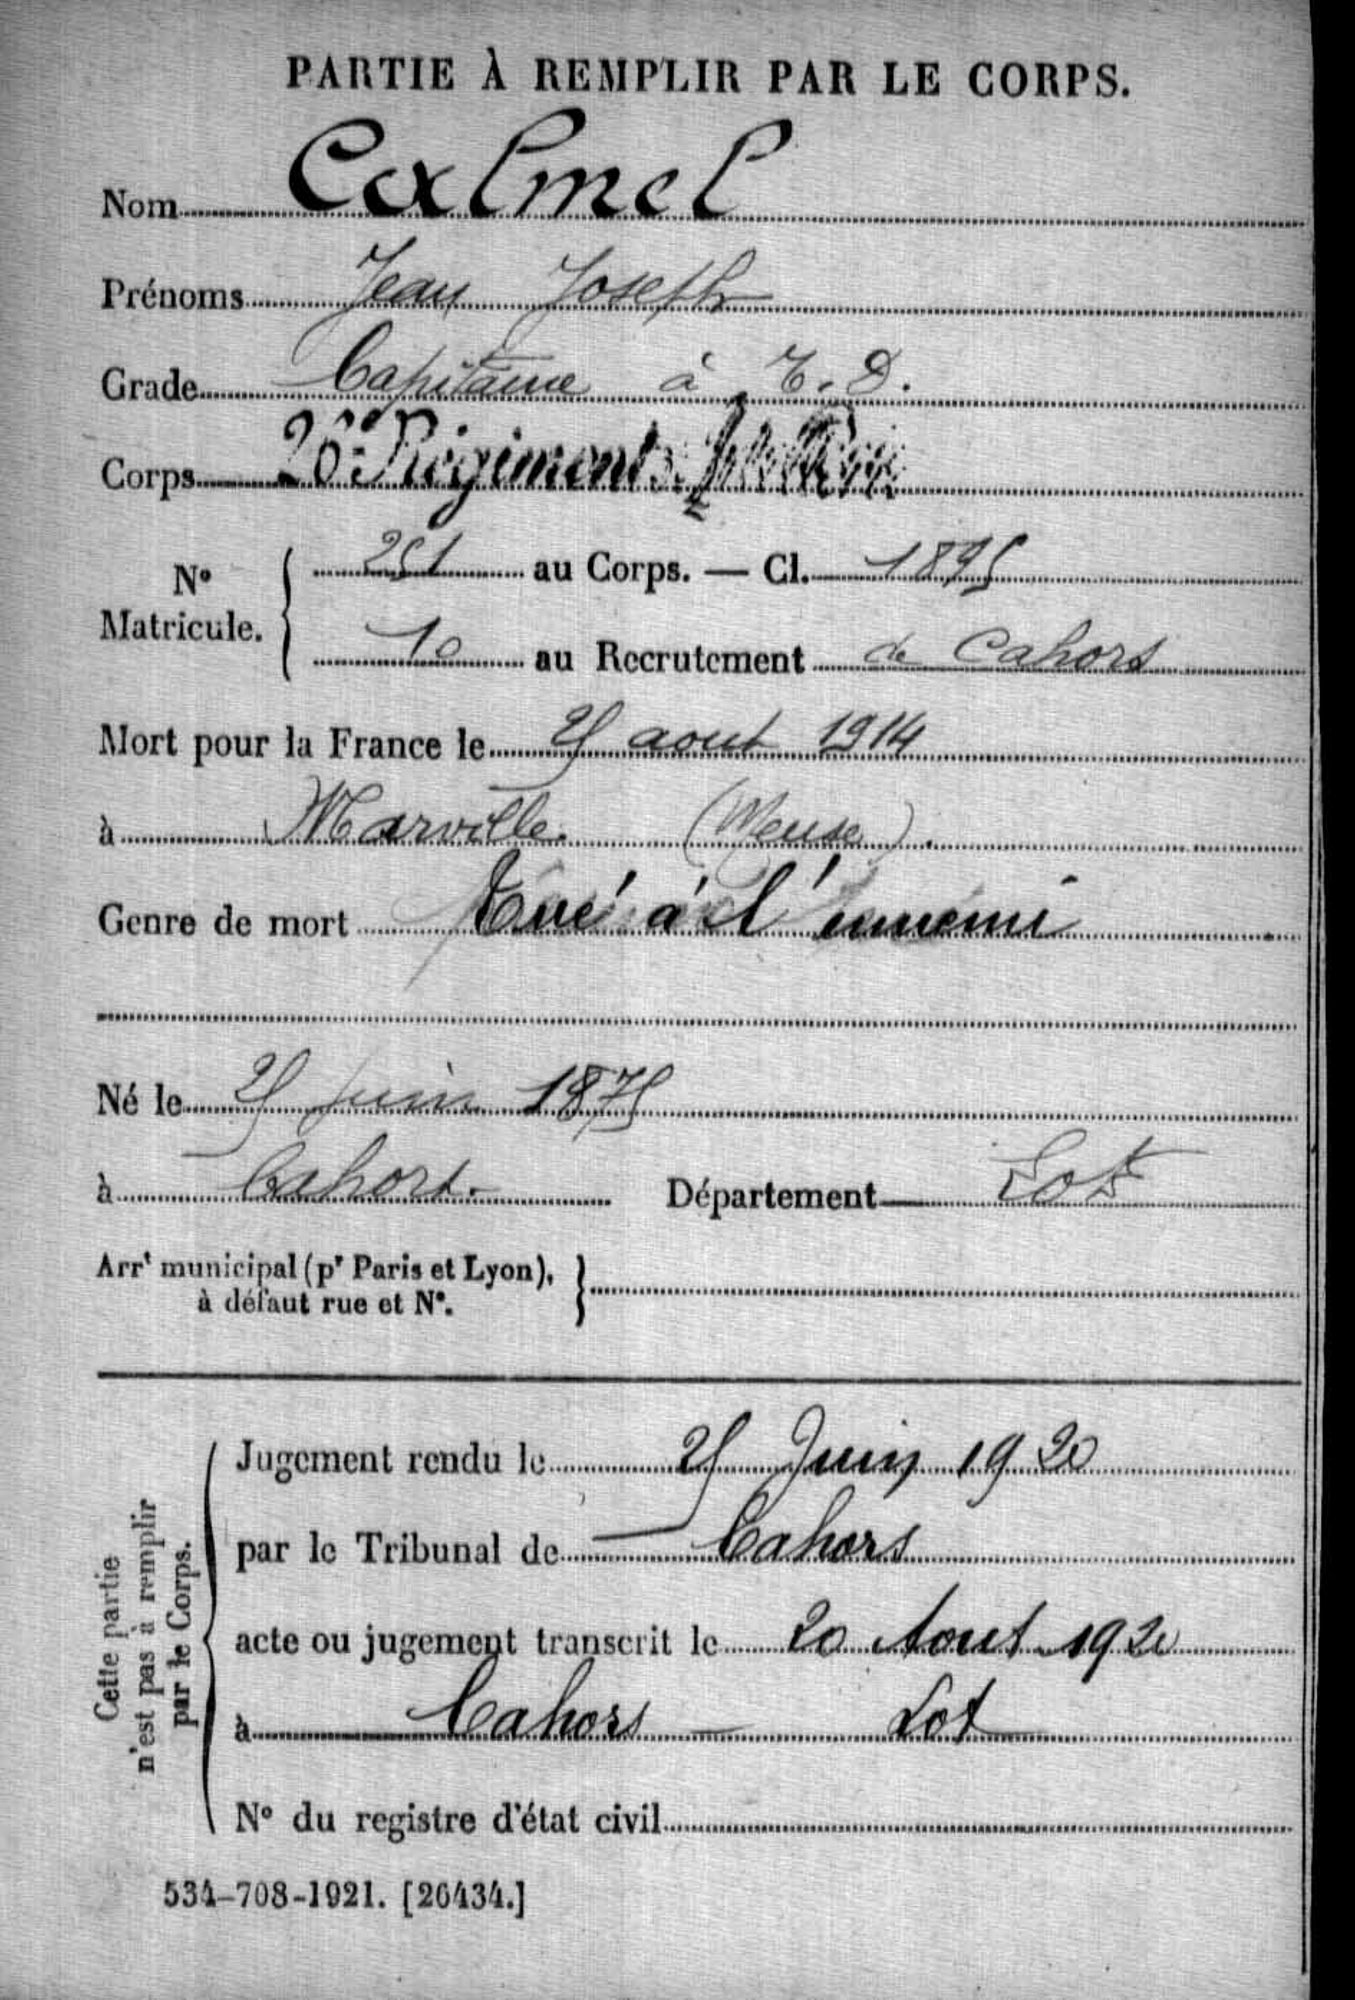 PARTIE À REMPLIR PAR LE CORPS.
Nom Calmel
Prénoms Jean Joseph
Grade Capitaine à T. D.
Corps Régiment
N° Matricule. 251 au Corps. — Cl. 1895
10 au Recrutement de Cahors
Mort pour la France le 25 aout 1914
à Marville. (Meuse).
Genre de mort Tué à l'ennemi
Né le 25 Juin 1875
à Cahors. Département Lot
Arrt municipal (pr Paris et Lyon),
à défaut rue et N°.
Cette partie
n'est pas à remplir
par le Corps.
Jugement rendu le 25 Juin 1920
par le Tribunal de Cahors
acte ou jugement transcrit le 20 Aout 1920
à Cahors - Lot
N° du registre d'état civil
534-708-1921. [26434.]